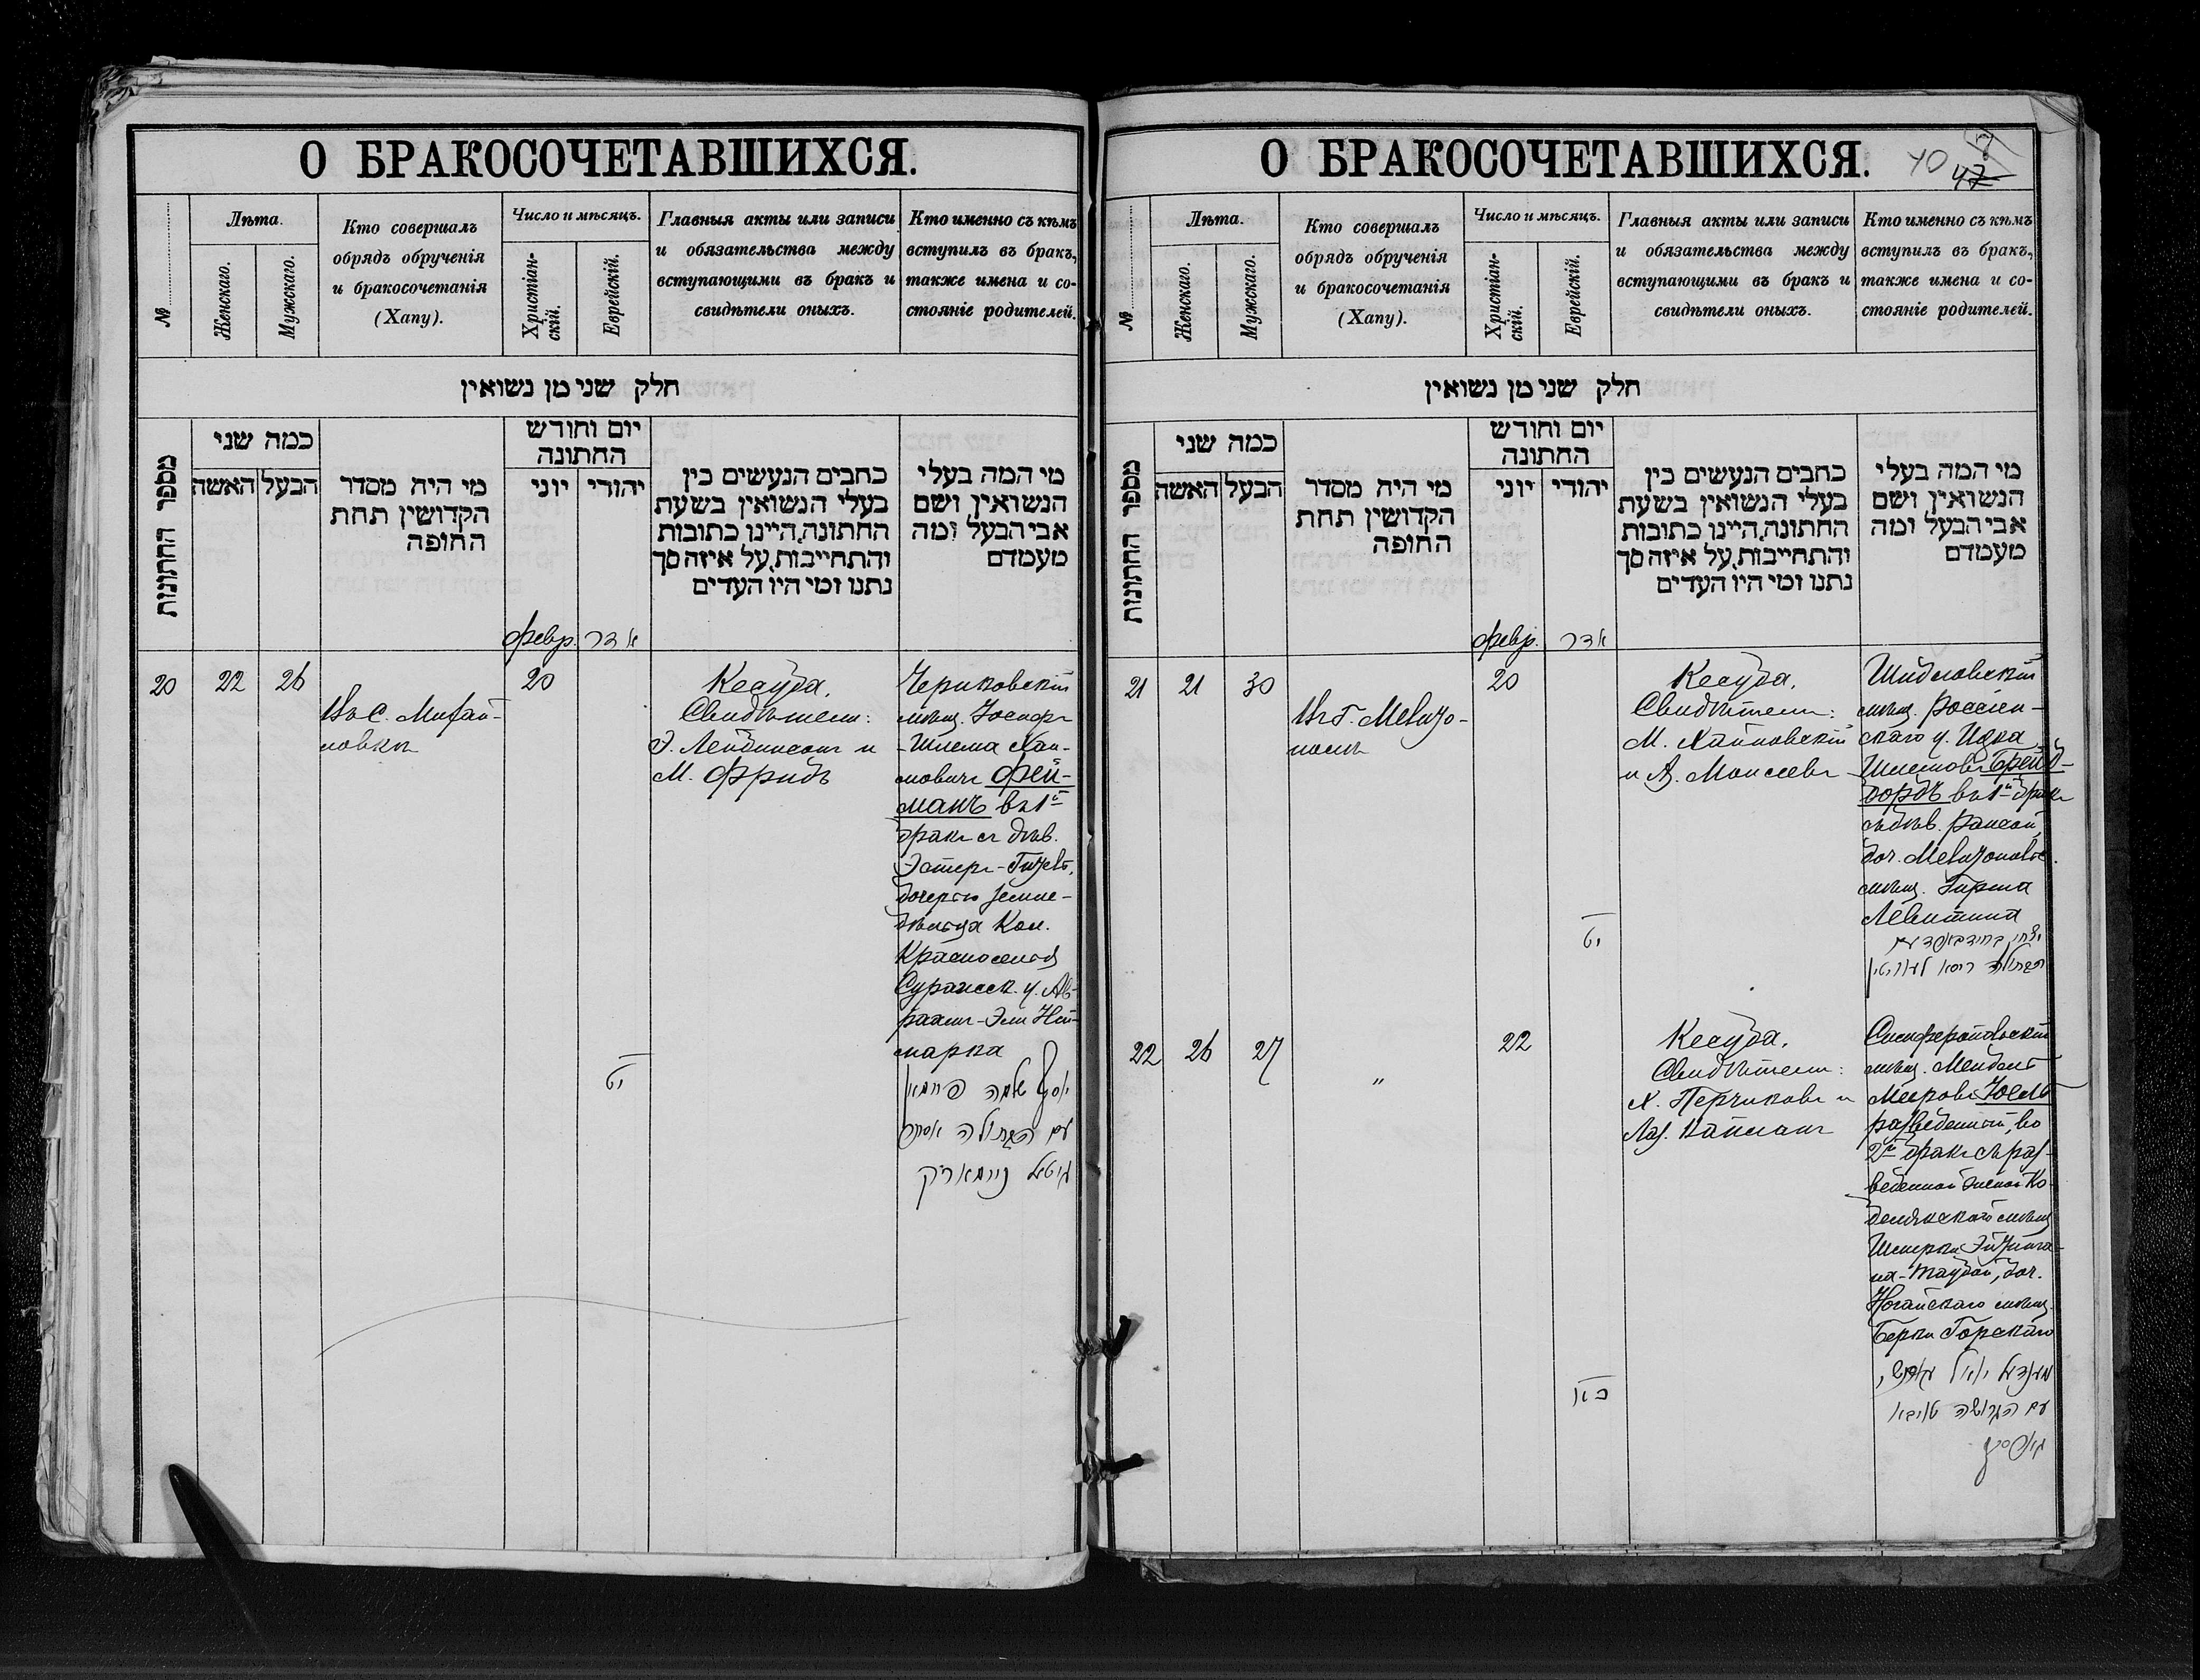 О БРАКОСОЧЕТАВШИХСЯ.
№
Лѣта.
Женскаго.
Мужскаго.
Кто совершалъ
обрядъ обрученія
и бракосочетанія
(Хапу).
Число и мѣсяцъ.
Христіан-
скій.
Еврейскій.
Главныя акты или записи
и обязательства между
вступающими въ бракъ и
свидѣтели оныхъ.
Кто именно съ кѣмъ
вступилъ въ бракъ,
также имена и со-
стояніе родителей.
חלק שני מן נשואין
מספר החתונות
כמה שני
האשה
הבעל
מי היה מסדר
הקדושין תחת
החופה
יום וחודש
החתונה
יוני
יהודי
כתבים הנעשים בין
בעלי הנשואין בשעת
החתונה, היינו כתובות
והתחייבות, על איזה סך
נתנו ומי היו העדים
מי המה בעלי
הנשואין ושם
אבי הבעל ומה
מעמדם
февр.
אדר
20
22
26
Въ С. Михай-
ловкѣ
20
יט
Кесуба.
Свидѣтели:
Э. Лейбинсонъ и
М. Фридъ
Чериковскій
мѣщ. Іосифъ
-Шлема Хаи-
мовичъ Фей-
манъ въ 1й
бракъ съ дѣв.
Эстеръ-Гитель,
дочерью земле-
дѣльца Кол.
Красноселья
Суражск. у. Ав-
раамъ-Эли Ней-
марка
יוסף שלמה פיימאן
עם הבתולה אסתר
גיטאל ניימארק
О БРАКОСОЧЕТАВШИХСЯ.
40
47
№
Лѣта.
Женскаго.
Мужскаго.
Кто совершалъ
обрядъ обрученія
и бракосочетанія
(Хапу).
Число и мѣсяцъ.
Христіан-
скій.
Еврейскій.
Главныя акты или записи
и обязательства между
вступающими въ бракъ и
свидѣтели оныхъ.
Кто именно съ кѣмъ
вступилъ въ бракъ,
также имена и со-
стояніе родителей.
חלק שני מן נשואין
מספר החתונות
כמה שני
האשה
הבעל
מי היה מסדר
הקדושין תחת
החופה
יום וחודש
החתונה
יוני
יהודי
כתבים הנעשים בין
בעלי הנשואין בשעת
החתונה, היינו כתובות
והתחייבות, על איזה סך
נתנו ומי היו העדים
מי המה בעלי
הנשואין ושם
אבי הבעל ומה
מעמדם
февр.
אדר
21
21
30
Въ Г. Мелито-
полѣ
20
יט
Кесуба.
Свидѣтели:
М. Хаймовскій
и А. Моисеевъ
Шидловскій
мѣщ. Россіен-
скаго у. Ицка
Шлемовъ Брейд-
бордъ въ 1й бракъ
съ дѣв. Райсой,
доч. Мелитопольс.
мѣщ. Гирша
Левитина
יצחק
הבתולה רייסא לעוויטין
22
26
27
"
22
כא
Кесуба.
Свидѣтели:
Х. Перчиковъ и
Лаз. Кайманъ
Симферопольскій
мѣщ. Мендель
Мееровъ Іоель
разведенный, во
2й бракъ съ раз-
веденной женой Ко-
белякскаго мѣщ
Шмерки
Таубой, доч.
Ногайскаго мѣщ.
Берки Горскаго
מענדל יואל גרוש,
עם הגרושה טויבא